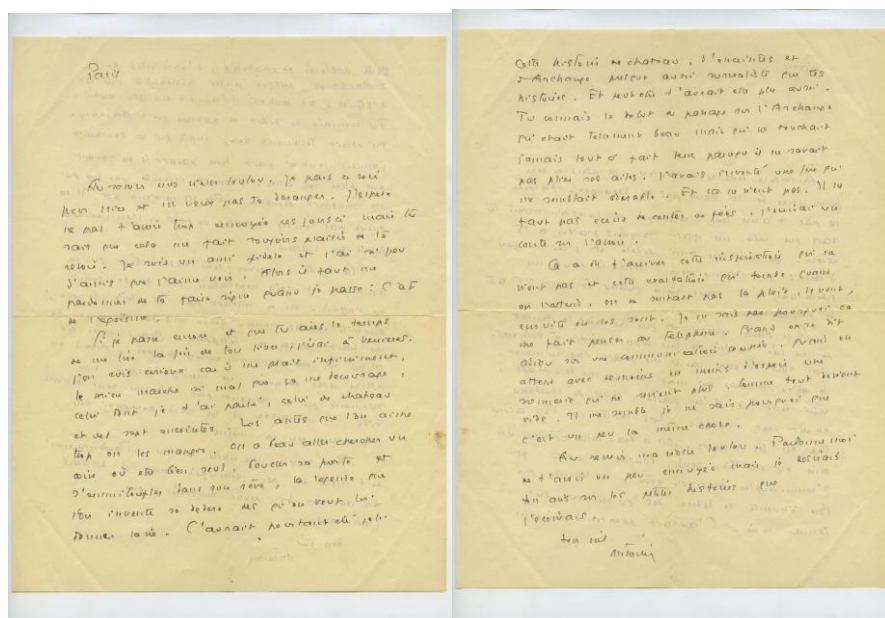 Paris
Au revoir mon vieux Loulou. Je pars ce soir
peur et ne veux pas te déranger. J'espère
ne pas t'avoir trop ennuyée ces jours ci mais tu
sais que cela me fait toujours plaisir de te
revoir. Je suis un ami fidèle et j'ai si peu
d'amis que j'aime voir. Alors il faut me
pardonner de te faire signe quand je passe : C'est
de l'égoïsme.
Si je passe encore et que tu aies le temps
de me lire la fin de ton livre, j'irai à
J'en suis curieux car il me plait infiniment.
Le mien marche si mal que ça me décourage,
celui dont je t'ai parlé, celui du chateau
et des sont enceintes. Les autres que l'on aime
trop on les manque. On a beau aller chercher un
coin où être bien seul, boucler sa porte et
dans son rêve, la légende que
l'on invente se dès qu'on veut lui
donner la vie. C'aurait pourtant été joli
cette histoire de chateau, d'enceintes et
d'Archange presque aussi surréaliste que tes
histoires. Et peut être t'aurait elle plu aussi.
Tu connais le début du passage sur l'Archange
qui était tellement beau mais qui ne touchait
jamais tout à fait terre parcequ'il ne savait
pas plier ses ailes. J'avais inventé une fin qui
me semblait adorable. Et ça ne vient pas. Il ne
faut pas écrire de contes de fées. J'écrirai un
conte sur l'avion.
Ça a dû t'arriver cette inspiration qui ne
vient pas et cette exaltation qui tombe quand
on l'attend. On ne sentait pas la pluie, le vent,
ensuite on les sent. Je ne sais pas pourquoi ça
me fait penser au téléphone. Quand on se dit
adieu sur une communication coupée. Quand on
attend avec de moins en moins d'espoir une
sonnerie qui ne vient plus. Comme tout devient
vide. Il me semble je ne sais pourquoi que
c'est un peu la même chose.
Au revoir ma vieille Loulou. Pardonne moi
de t'avoir un peu ennuyée mais je
sur les petites histoires que
j'écrivais.
ton
Antoine